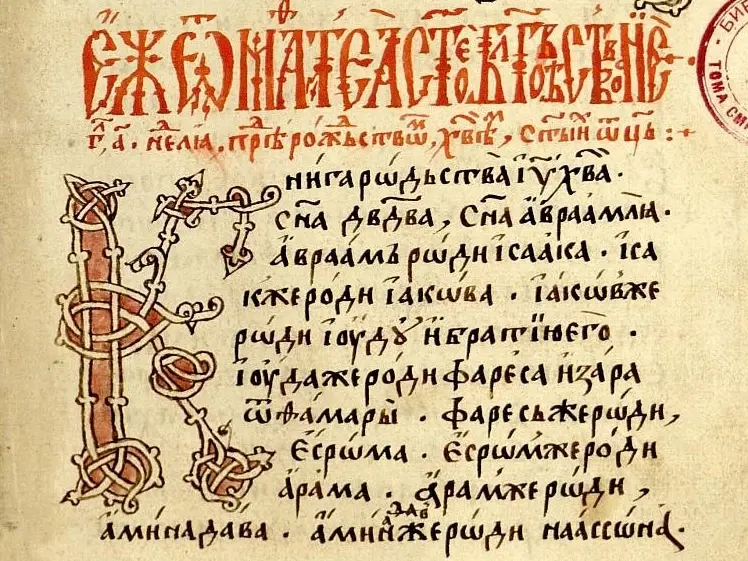 Є҆́же ѿ мат꙼ѳеа ст҃ое бл҃говѣствованїе
гл҃а . а҃ . нелѧ , прѣⷤ рожⷣьствоⷨ , хв҃ѣⷨ , ст҃ыи ѿць :
Книга рѡдьства і҆у҃ х҃ва .
сн҃а дв҃два , сн҃а а҆враамлѧ .
а҆враамъ рѡди і҆саака . і҆са
кже роди і҆акѡва . і҆акѡвже
рѡди і҆оудоу и҆ братїю е҆го .
і҆оуда же роди фареса и҆ зара
ѿ ѳамары . фаресь же рѡди ,
е҆срѡма . е҆срѡмже роди
а҆рама . а҆рамже рѡди ,
а҆минадава . а҆минадавже рѡди наассѡна .
БИБ
ТОМА СМ